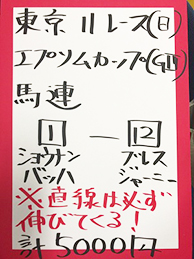 東京11レース(日)
エプソムカップ(GIII)
馬連
1 — 12
ショウナン ブレス
バッハ ジャーニー
※直線は必ず
伸びてくる!
計5000円